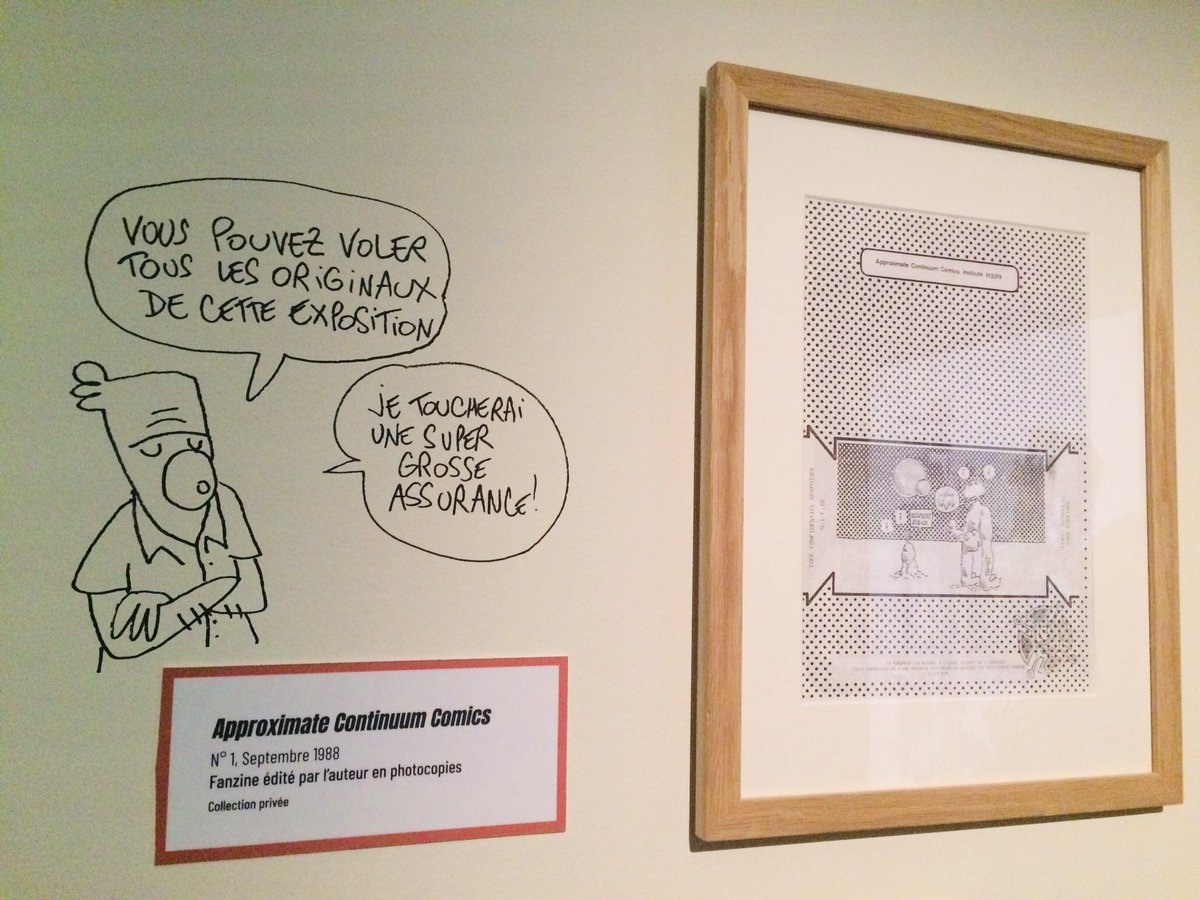 VOUS POUVEZ VOLER
TOUS LES ORIGINAUX
DE CETTE EXPOSITION
JE TOUCHERAI
UNE SUPER
GROSSE
ASSURANCE!
Approximate Continuum Comics
N° 1, Septembre 1988
Fanzine édité par l'auteur en photocopies
Collection privée
Approximate Continuum Comics Institute H3319
CODE CONFIDENTIEL GRAPHIQUE